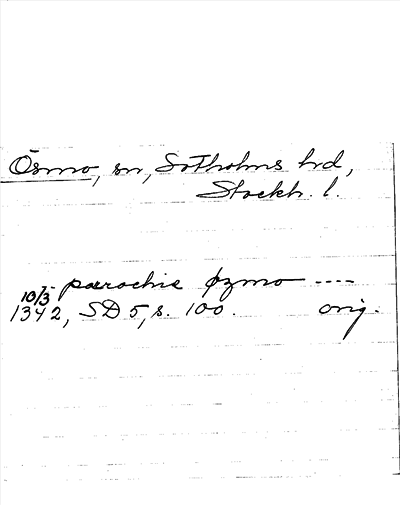 Ösmo, sn, Sotholms hrd,
Stockh. l.
parochie øzmo ----
10/3 1342, SD 5, s. 100. orig.